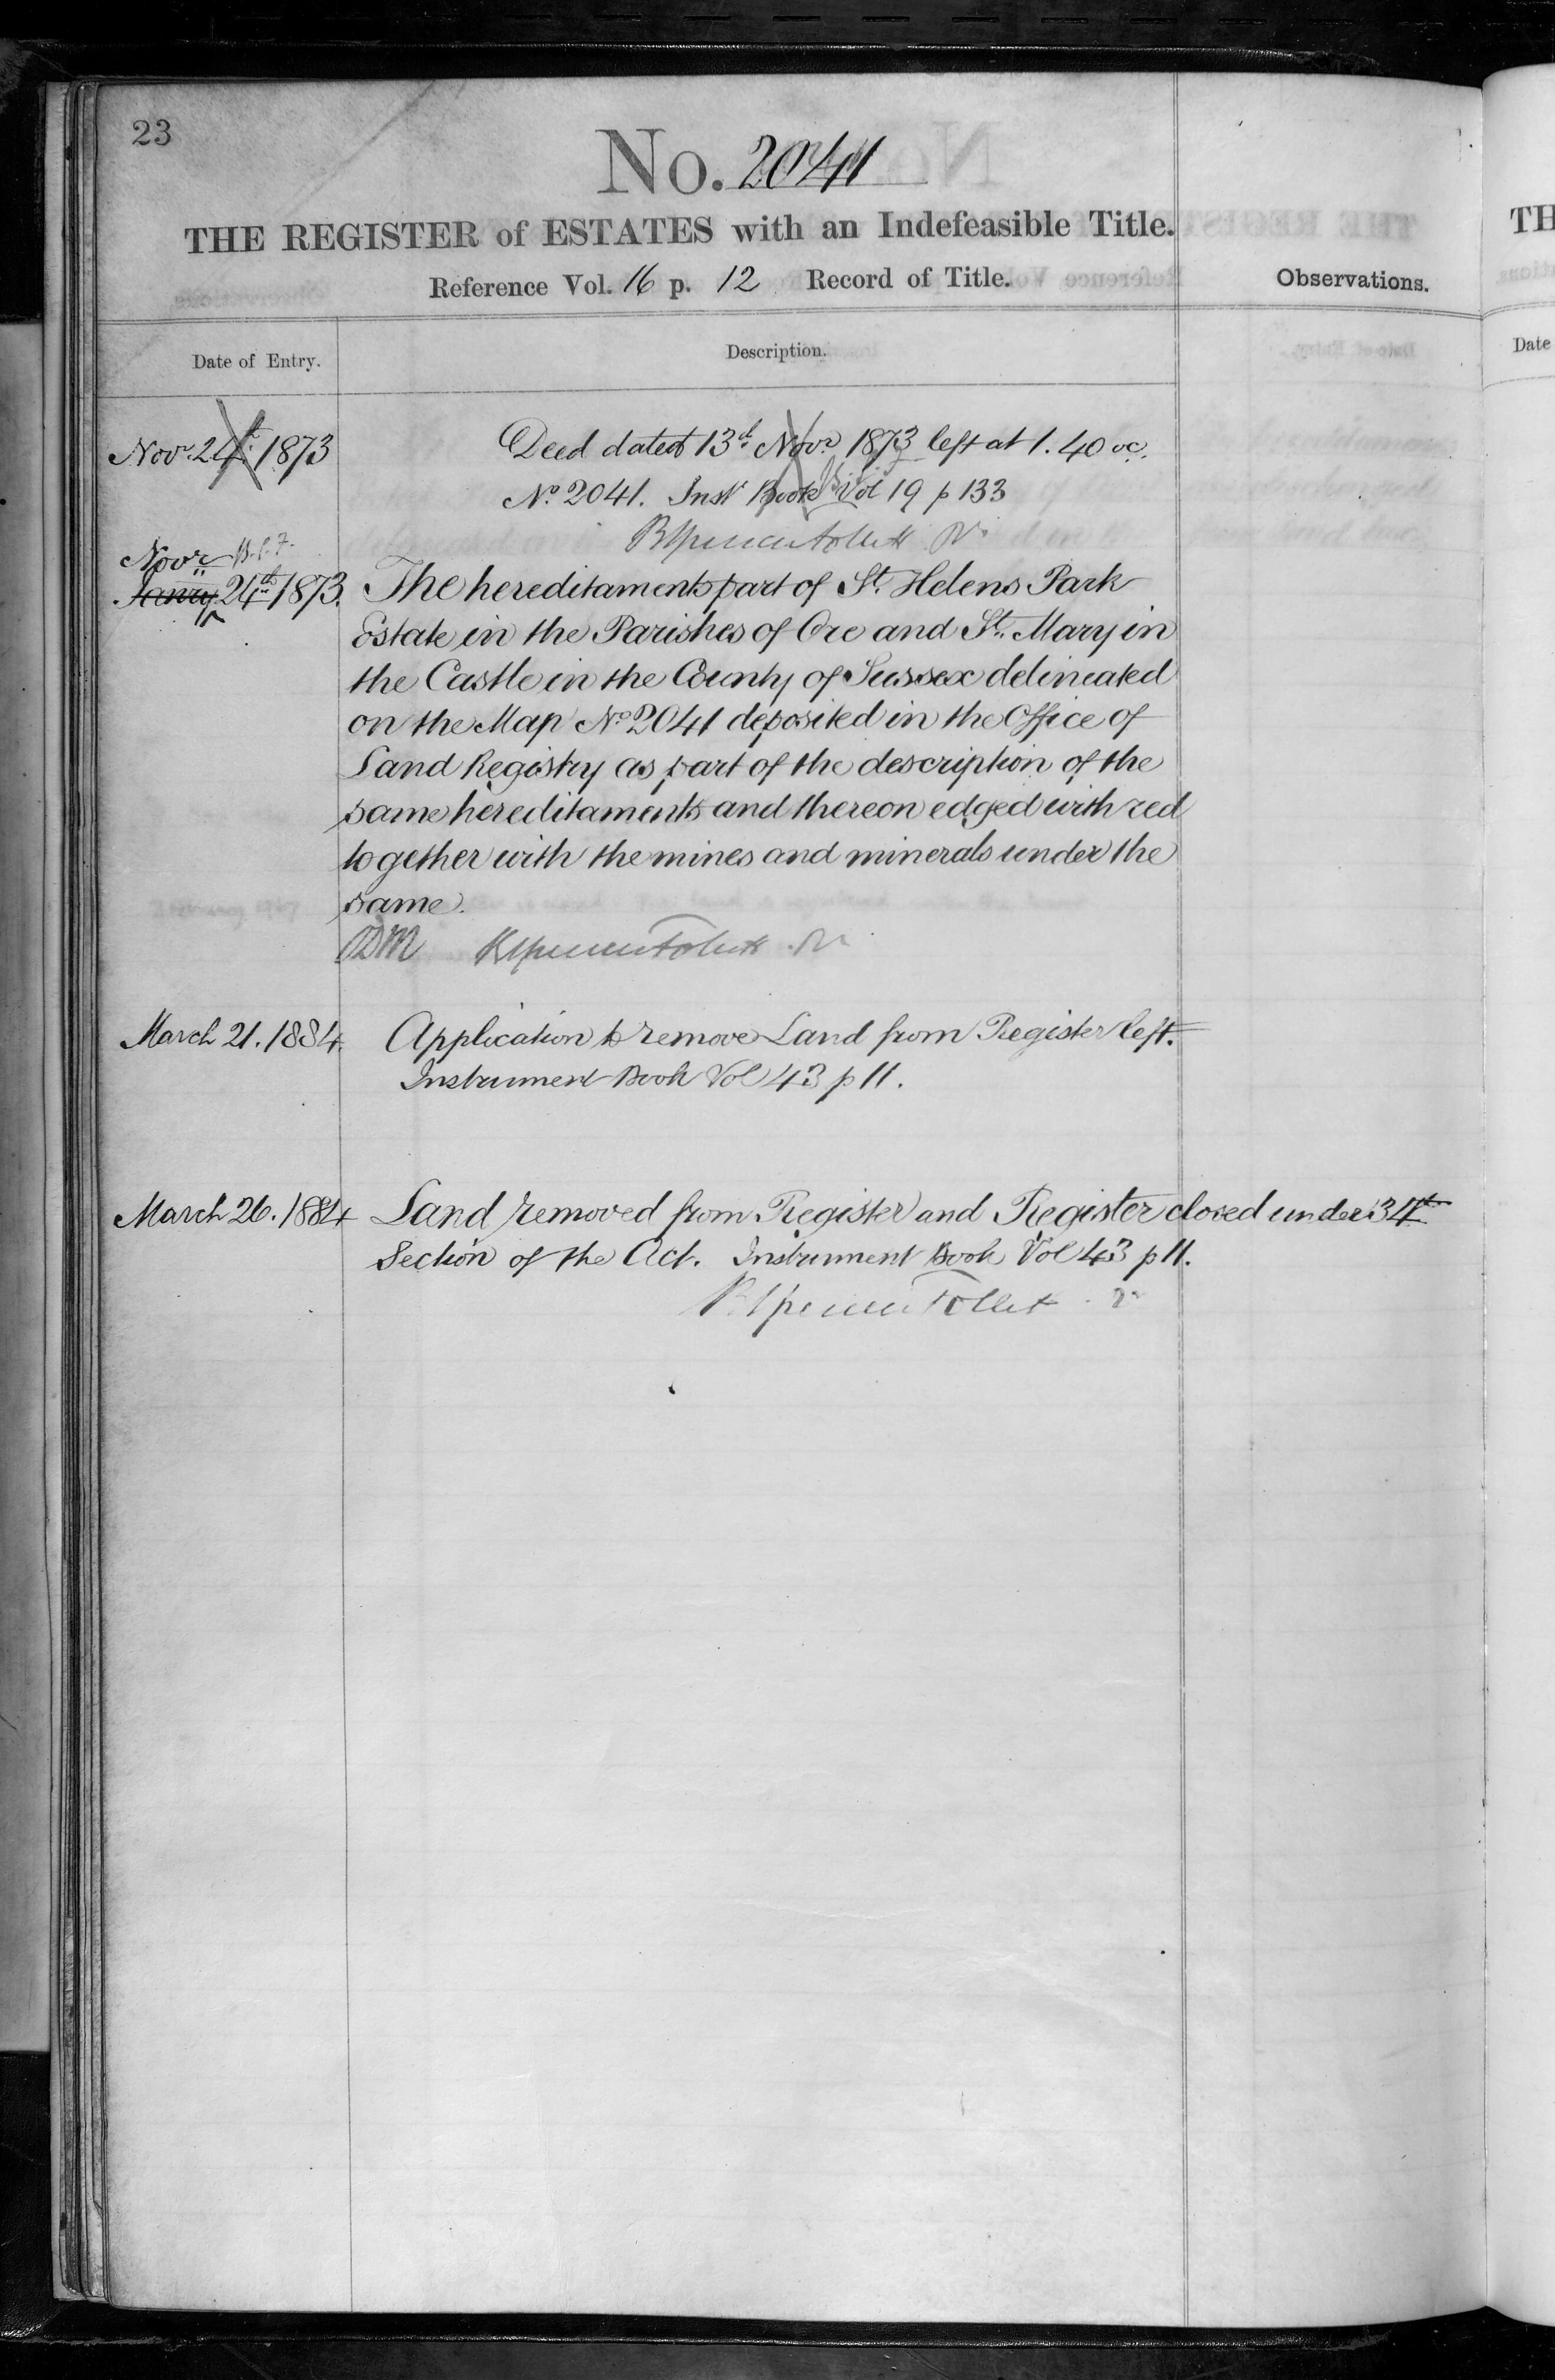 23
No. 2041
THE REGISTER of ESTATES with an Indefeasible Title.
Reference Vol. 16 p. 12 Record of Title.
Observations.
Date of Entry.
Description.
Novr. 24th. 1873
Deed dated 13th. Novr. 1873 left at 1.40 oc.
No. 2041. Inst Book Vol 19 p 133
Novr
Janry 24th 1873.
The hereditaments part of St. Helens Park
Estate in the Parishes of Ore and St. Mary in
the Castle in the County of Sussex delineated
on the Map No. 2041 deposited in the Office of
Land Registry as part of the description of the
same hereditaments and thereon edged with red
together with the mines and minerals under the
same.
March 21. 1884.
Application to remove Land from Register left.
Instrument Book Vol 43 p 11.
March 26. 1884
Land removed from Register and Register closed under 34th
Section of the Act. Instrument Book Vol 43 p 11.
TH
Date